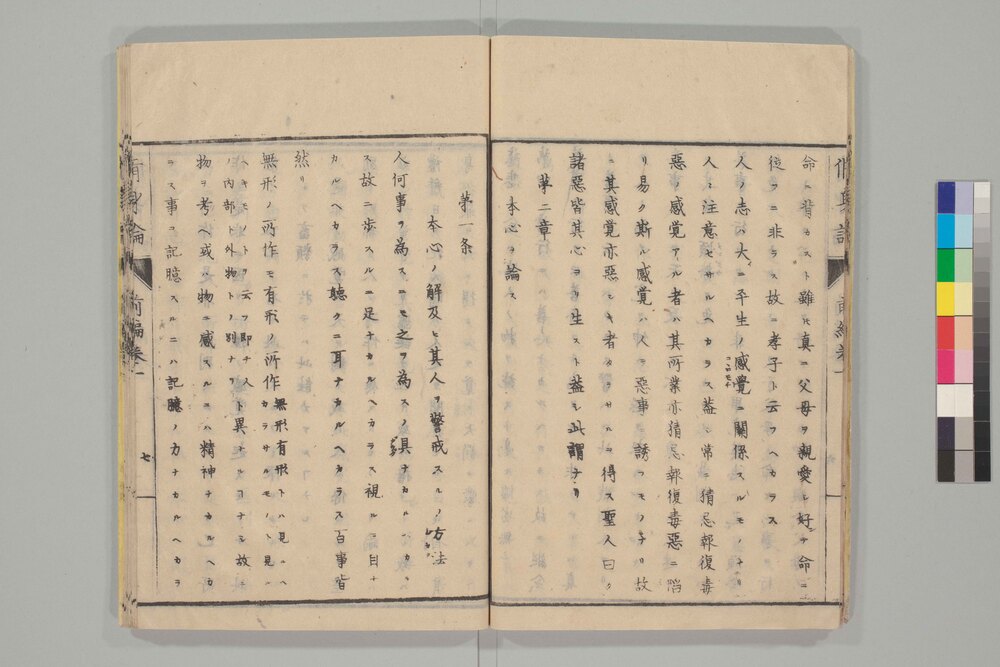 命ニ背カスト雖モ真ニ父母ヲ親愛シ好テ命ニ
従フニ非ラス故ニ孝子ト云フヘカラス
人ノ志ハ大ニ平生ノ感覚ニ關係スルモノナリ
人々注意セサルヘカラス蓋シ常ニ猜忌報復毒
惡ノ感覚アル者ハ其所業亦猜忌報復毒惡ニ陥
リ易ク斯ル感覚ハ人ヲ惡事ニ誘フモノナリ故
ニ其感覚亦惡シキ者タラサルヲ得ス聖人曰ク
諸惡皆其心ヨリ生スト蓋シ此謂ナリ
第二章
本心ヲ論ス
第一条
本心ノ解及ヒ其人ヲ警戒スルノ方法
人何事ヲ為スニモ之ヲ為スノ具ナカルヘカラ
ス故ニ歩スルニ足ナカルヘカラス視ルニ目ナ
カルヘカラス聴クニ耳ナカルヘカラス百事皆
然リ
無形ノ所作モ有形ノ所作 無形有形トハ見ユヘ
カラサルモノト見ユ
ヘキモノトヲ云フ即チ人ト異トスルヿナシ故ニ
ノ内部ト外物トノ別ナリ
物ヲ考ヘ或ハ物ニ感スルニハ精神ナカルヘカ
ラス事ヲ記臆スルニハ記臆ノ力ナカルヘカラ
前編巻一
七